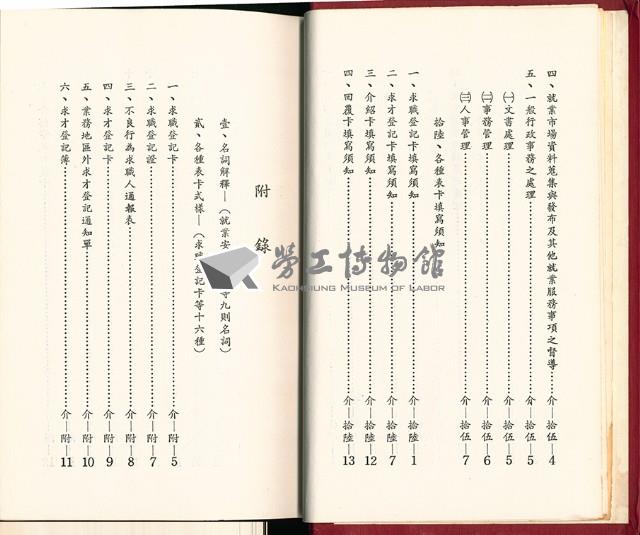 四、就業市場資料蒐集與發布及其他就業服務事項之督導……介—拾伍—4
五、一般行政事務之處理……介—拾伍—5
㈠文書處理……介—拾伍—5
㈡事務管理……介—拾伍—6
㈢人事管理……介—拾伍—7
拾陸、各種表卡填寫須知
一、求職登記卡填寫須知……介—拾陸—1
二、求才登記卡填寫須知……介—拾陸—7
三、介紹卡填寫須知……介—拾陸—12
四、回覆卡填寫須知……介—拾陸—13
附錄
壹、名詞解釋—(就業安 等九則名詞)
貳、各種表卡式樣—(求職登記卡等十六種)
一、求職登記卡……介—附—5
二、求職登記證……介—附—7
三、不良行為求職人通報表……介—附—8
四、求才登記卡……介—附—9
五、業務地區外求才登記通知單……介—附—10
六、求才登記簿……介—附—11
勞工博物館
KAOHSIUNG MUSEUM OF LABOR